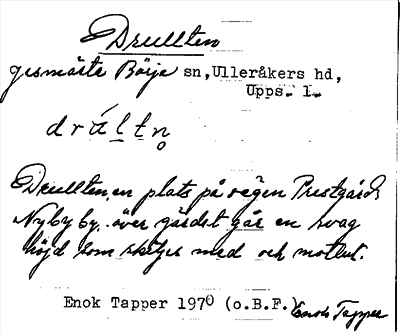 Drullten
Börje sn, Ulleråkers hd,
Upps. l.
d r ú l t n̥
Drullten, en plats på vägen Prestgård
Nyby by. över gärdet går en svag
höjd som skiljer med och motlut.
Enok Tapper 1970 (o.B.F.) Enok Tapper